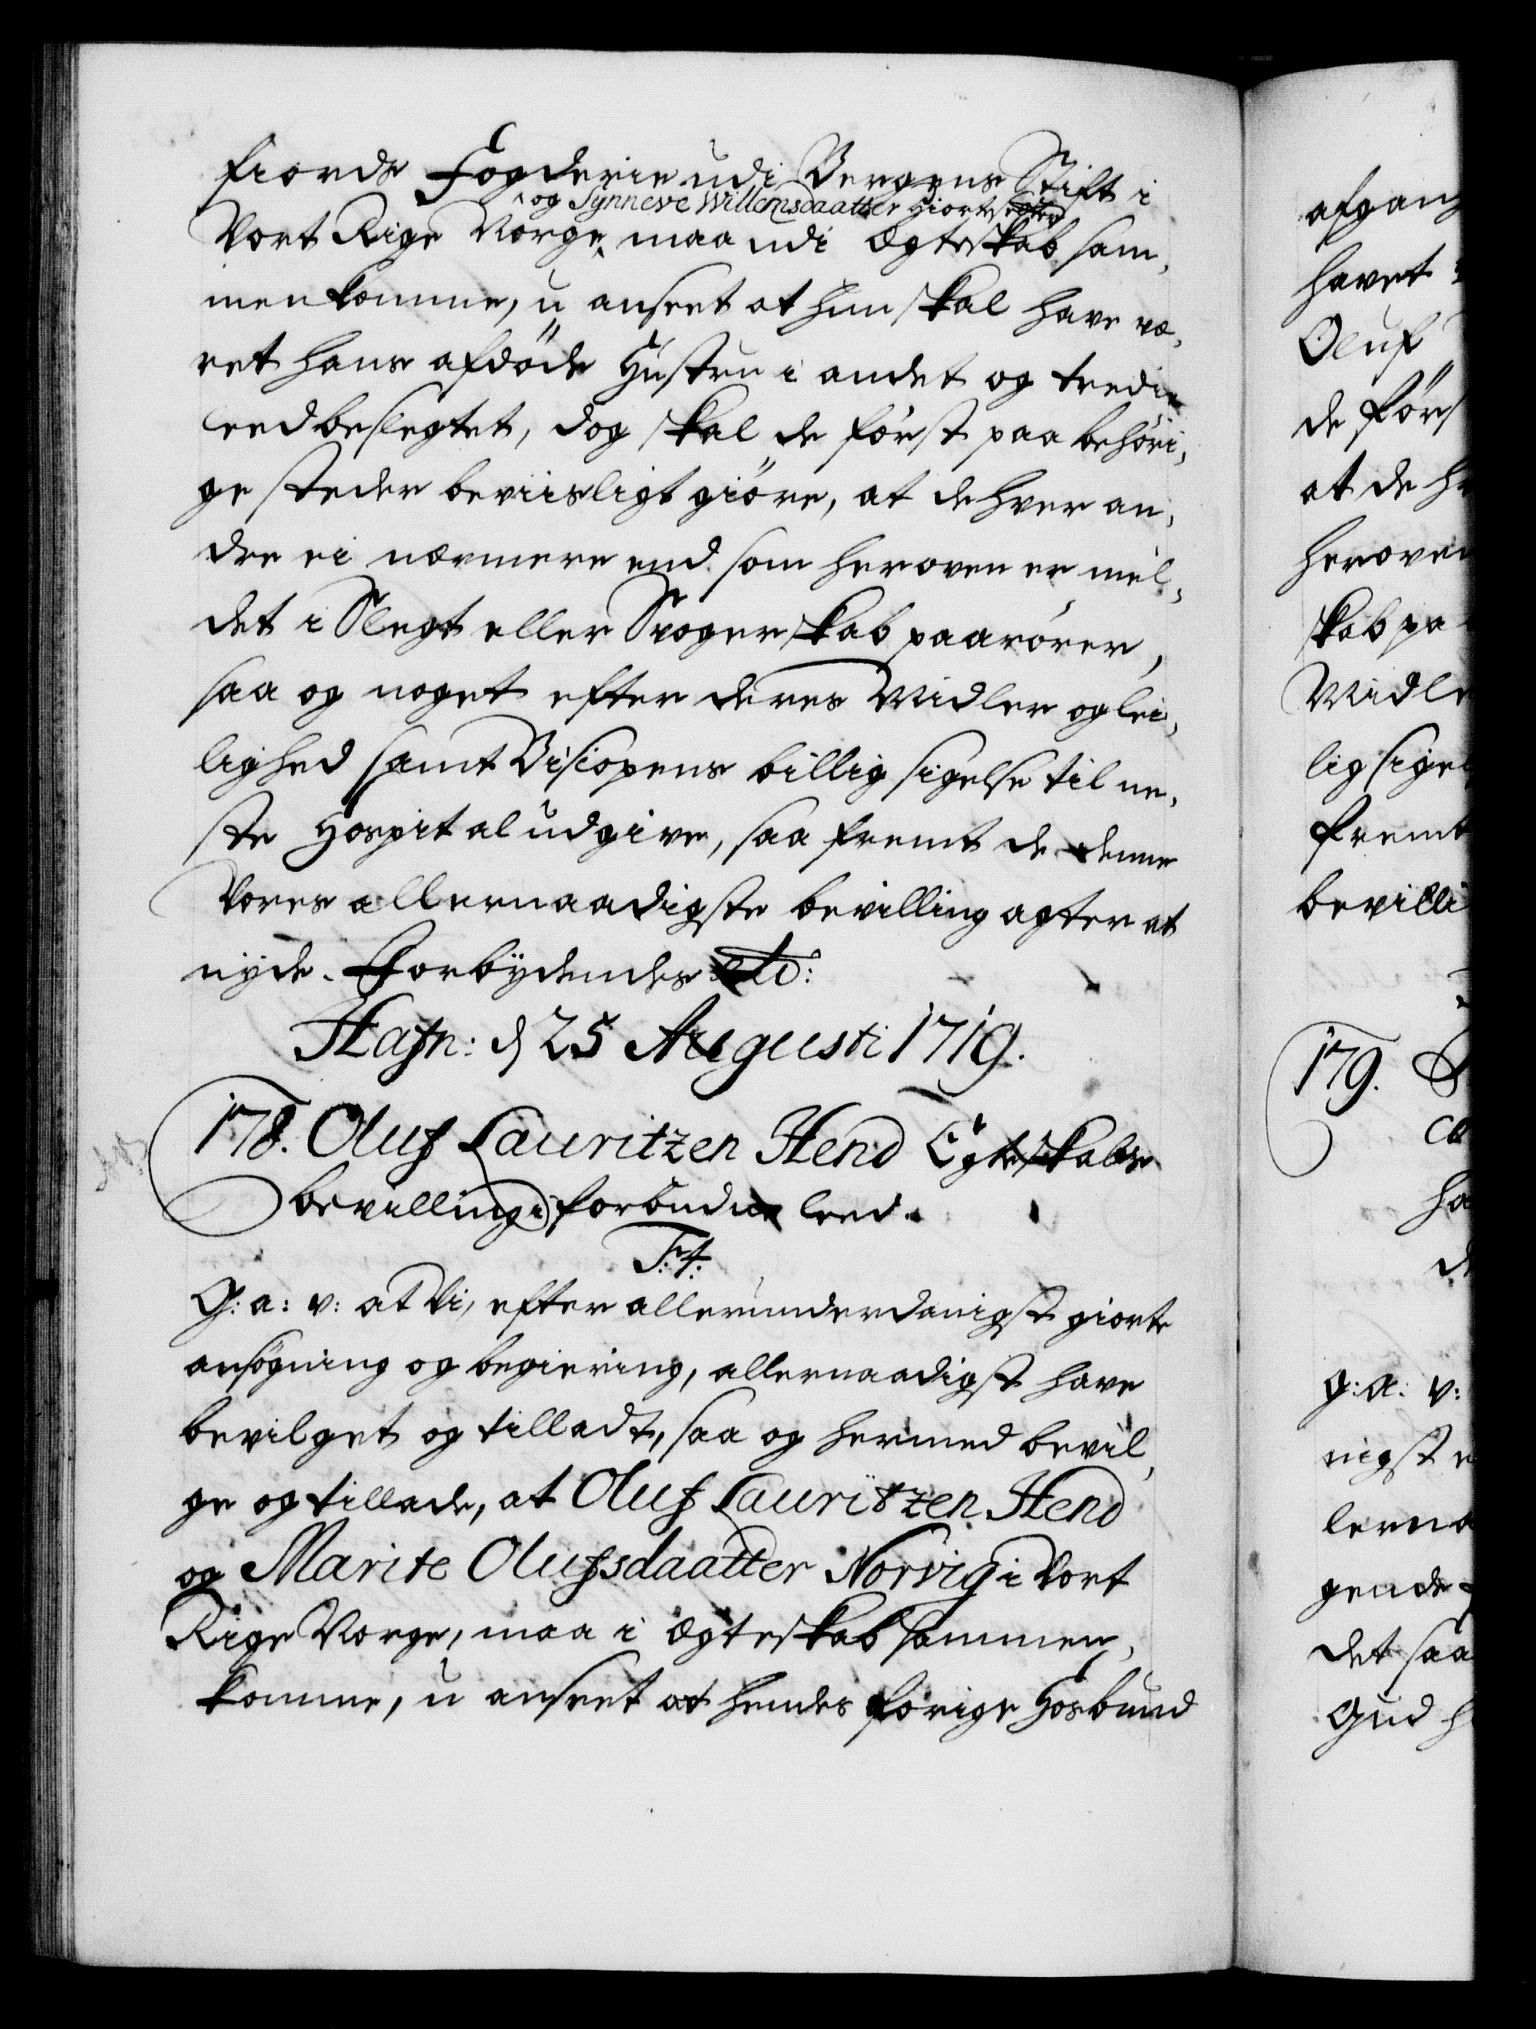 fiords Fogderie udi Bergens Stift i
og Synneve Willemsdaatter
Vort Rige Norge, maa udi Ægteskab sam¬
menkomme, u anseet at hun skal have væ¬
ret hans afdöde Hustru i andet og tredie
leed beslegtet, dog skal de först paa behöri¬
ge steder beviisligt giöre, at de hver an¬
dre ei nærmere end som heroven er mel¬
det i Slegt eller Svogerskab paarörer,
saa og noget efter deres Midler og lei¬
lighed samt Bisiopens billig sigelse til ne¬
ste Hospital udgive, saa fremt de denne
Vores allernaadigste bevilling agter at
nyde. Forbydendes etc:
Hafn: d 25 Augusti 1719.
178. Oluf Lauritzen Hend Egteskabs
bevilling i forbudne leed.
F: 4:
G: a: v: at Vi, efter allerunderdanigst giorte
ansögning og begiering, allernaadigst have
bevilget og tilladt, saa og hermed bevil¬
ge og tillade, at Oluf Lauritzen Hend
og Marite Olufsdaatter Norvig i Vort
Rige Norge, maa i Ægteskab sammen¬
komme, u anseet at hendes forige Hosbund
afgang
havet
Oluf
de förs
at de h
heroven
skab pa
Midle
lig sigel
fremt
bevilli
179.
ha
g: a: v:
nigst
lerna
gende
det saa
Gud h